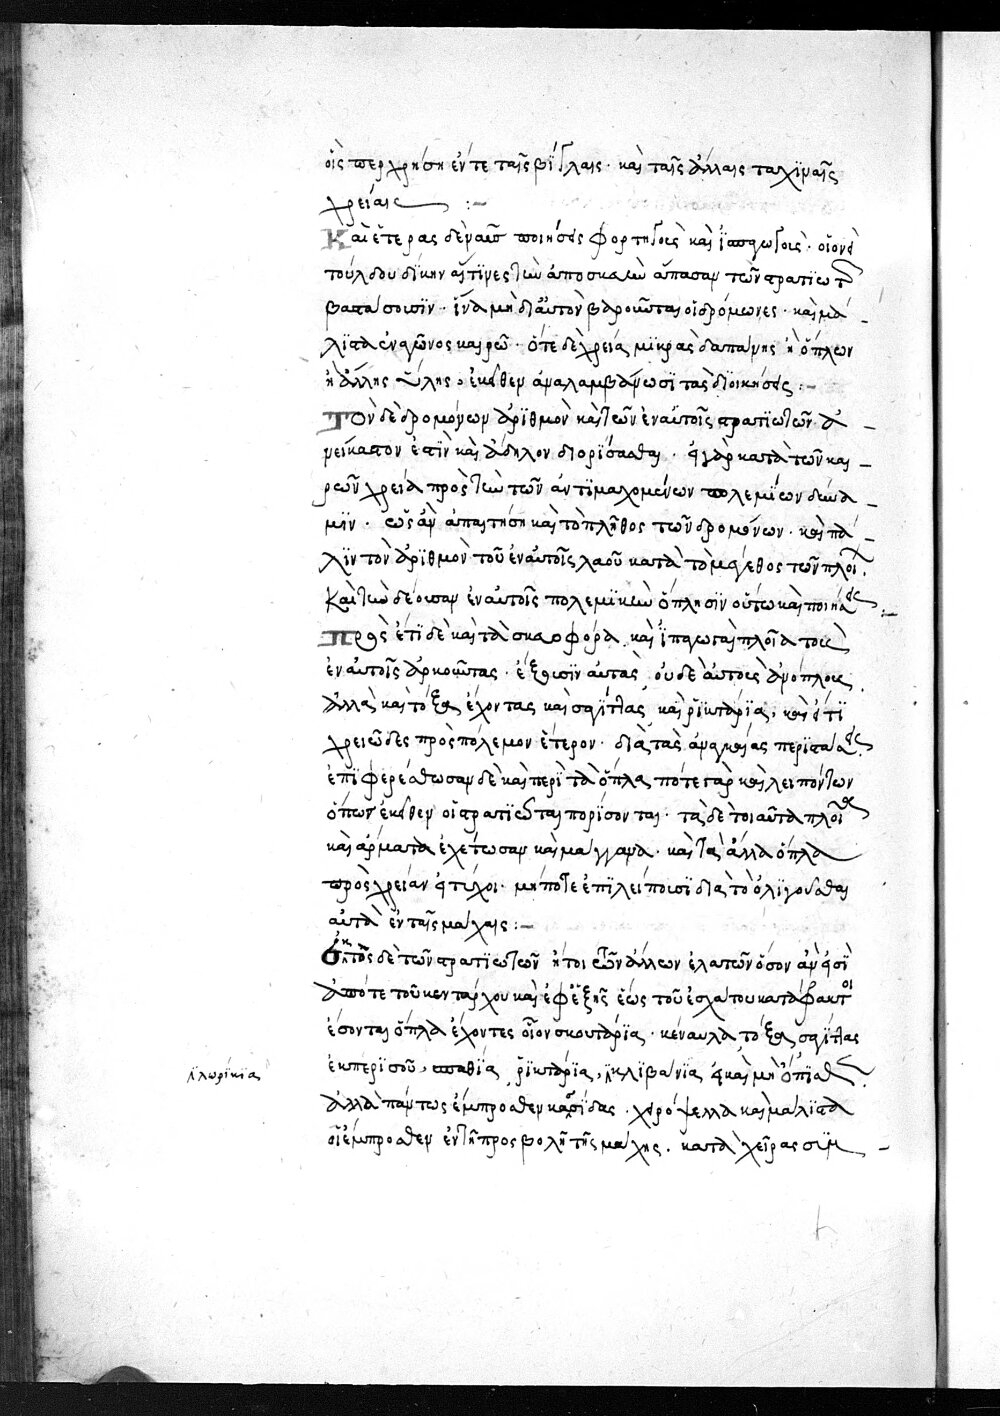 οἷς περ χρήση ἔν τε ταῖς βίγλαις· καὶ ταῖς ἄλλαις ταχϊναῖς
χρείαις :~
Καὶ ἑτέρας δὲ ναῦς ποιήσεις φορτηγοὺς καὶ ἱππαγωγοὺς· οἱονεὶ
τούλδου δίκην αἵτινες τὴν ἀποσκευὴν ἅπασαν τῶν στρατϊωτῶν
βαστάσουσϊν· ἵνα μὴ δι αὐτὸν βαροῦνται οἱ δρόμωνες· καὶ μά
λϊστα ἐν ἀγῶνος καιρῶ· ὅτε δὲ χρεία μϊκρᾶς δαπάνης ἢ ὅπλων
ἢ ἄλλης ὕλης, ἐκεῖθεν ἀναλαμβάνωσϊ τὰς διοικήσεις :~
Τὸν δὲ δρομόνων ἀρϊθμὸν καὶ τῶν ἐν αὐτοῖς στρατϊωτῶν ἀ
νείκαστον ἐστὶν καὶ ἄδηλον διορίσασθαι· ἡ γὰρ κατὰ τῶν και
ρῶν χρεία πρὸς τὴν τῶν ἀντϊμαχομένων πολεμίων δύνα
μϊν· ὡς ἂν ἀπαιτήση καὶ τὸ πλῆθος τῶν δρομόνων· καὶ πά
λϊν τὸν ἀρϊθμὸν τοῦ ἐν αὐτοῖς λαοῦ κατὰ τὸ μέγεθος τῶν πλοίων.
Καὶ τὴν δέουσαν ἐν αὐτοῖς πολεμϊκὴν ὅπλησϊν οὕτω καὶ ποιήσεις :~
Πρὸς ἔτϊ δὲ καὶ τὰ σκευοφόρα καὶ ἱππαγωγὰ πλοῖα τοὺς
ἐν αὐτοῖς ἀρκοῦντας· ἕξουσϊν ναύτας, οὐδὲ αὐτοὺς ἀνόπλους,
ἀλλὰ καὶ τόξα ἔχοντας καὶ σαγίττας καὶ ῥϊκτάρϊα, καὶ ἔτϊ
χρειῶδες πρὸς πόλεμον ἕτερον· διὰ τὰς ἀναγκαίας περϊστάσεις.
ἐπϊφερέσθωσαν δὲ καὶ περϊττὰ ὅπλα ποτὲ γὰρ καὶ λειπόντων
ὅπως ἐκεῖθεν οἱ στρατϊῶται πορίσονται· τὰ δὲ τοιαῦτα πλοῖα
καὶ ἄρματα ἐχέτωσαν καὶ μάγγανα· καὶ τὰ ἄλλα ὅπλα
πρὸς χρείαν εἰ τύχοι· μήποτε ἐπϊλείπουσϊ διὰ τὸ ὀλϊγοῦσθαι
αὐτὰ ἐν ταῖς μάχαις :~
ἐκτὸς δὲ τῶν στρατϊωτῶν ἤτοι τῶν ἄλλων ἐλατῶν ὅσον ἂν εἰσϊ
ἀπό τε τοῦ κεντάρχου καὶ ἐφεξῆς ἕως τοῦ ἐσχάτου κατάφρακτοι
ἔσονται ὅπλα ἔχοντες οἷον σκουτάρϊα· κέναυλα, τόξα σαγίτας
ἐκ περισσοῦ, σπαθία, ῥϊκτάρϊα, κλϊβάνϊα εἰ καὶ μὴ ὄπϊσθεν
ἀλλὰ πάντως ἔμπροσθεν κασσίδας· χειρόψελλα καὶ μάλϊστα
οἱ ἔμπροσθεν ἐν τῆ προσβολῆ τῆς μάχης. κατὰ χεῖρας συμ
λωρίκια